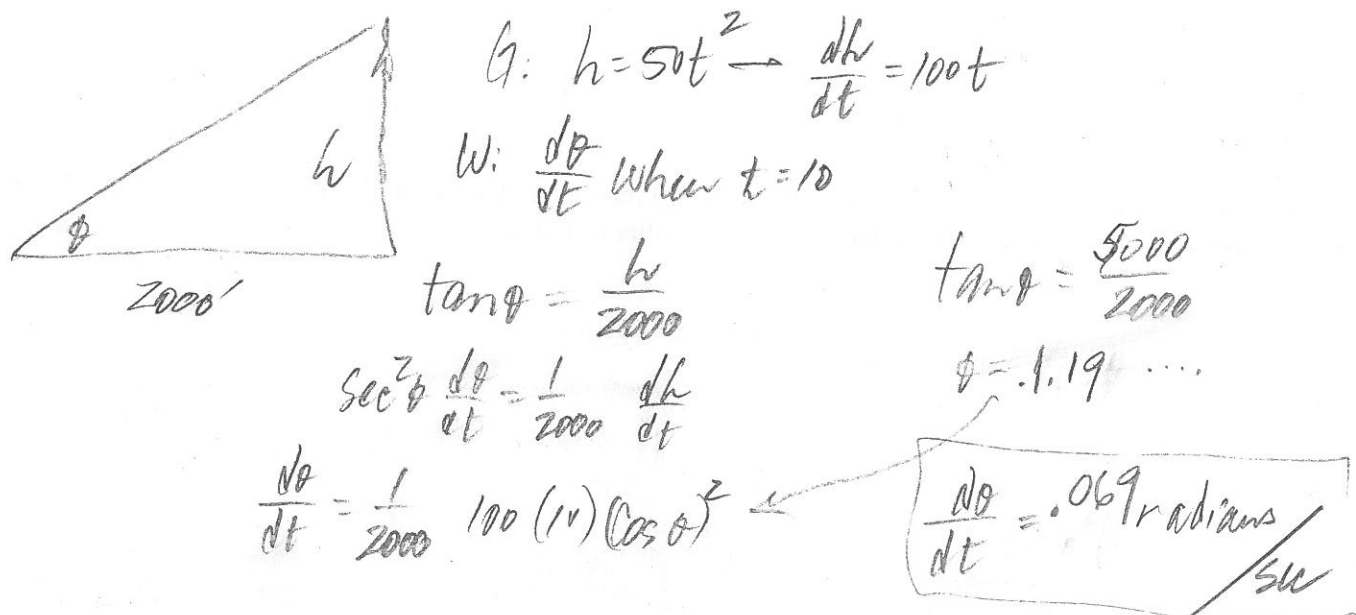 G: h = 50t² → dh/dt = 100t
h
W: dθ/dt when t = 10
θ
2000'
tanθ = h/2000
sec²θ dθ/dt = 1/2000 dh/dt
dθ/dt = 1/2000 100 (10) (cos θ)²
tanθ = 5000/2000
θ = .1.19 ....
dθ/dt = .069 radians/sec